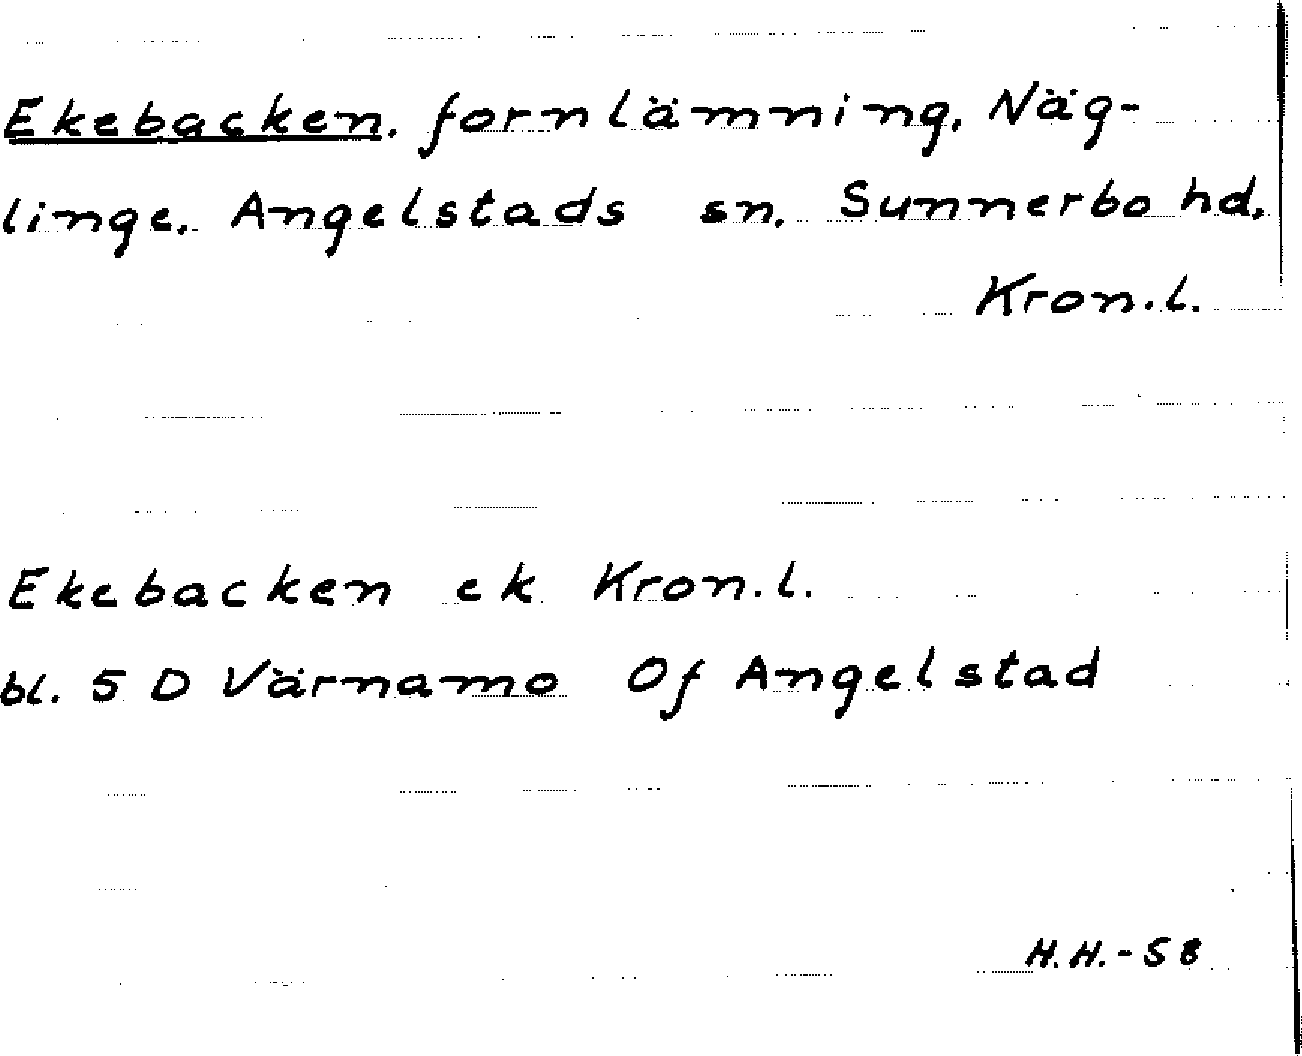 Ekebacken. fornlämning, Näg-
linge. Angelstads sn. Sunnerbo hd.
Kron.l.
Ekebacken ek Kron.l.
bl. 5 D Värnamo Of Angelstad
H.H.-58